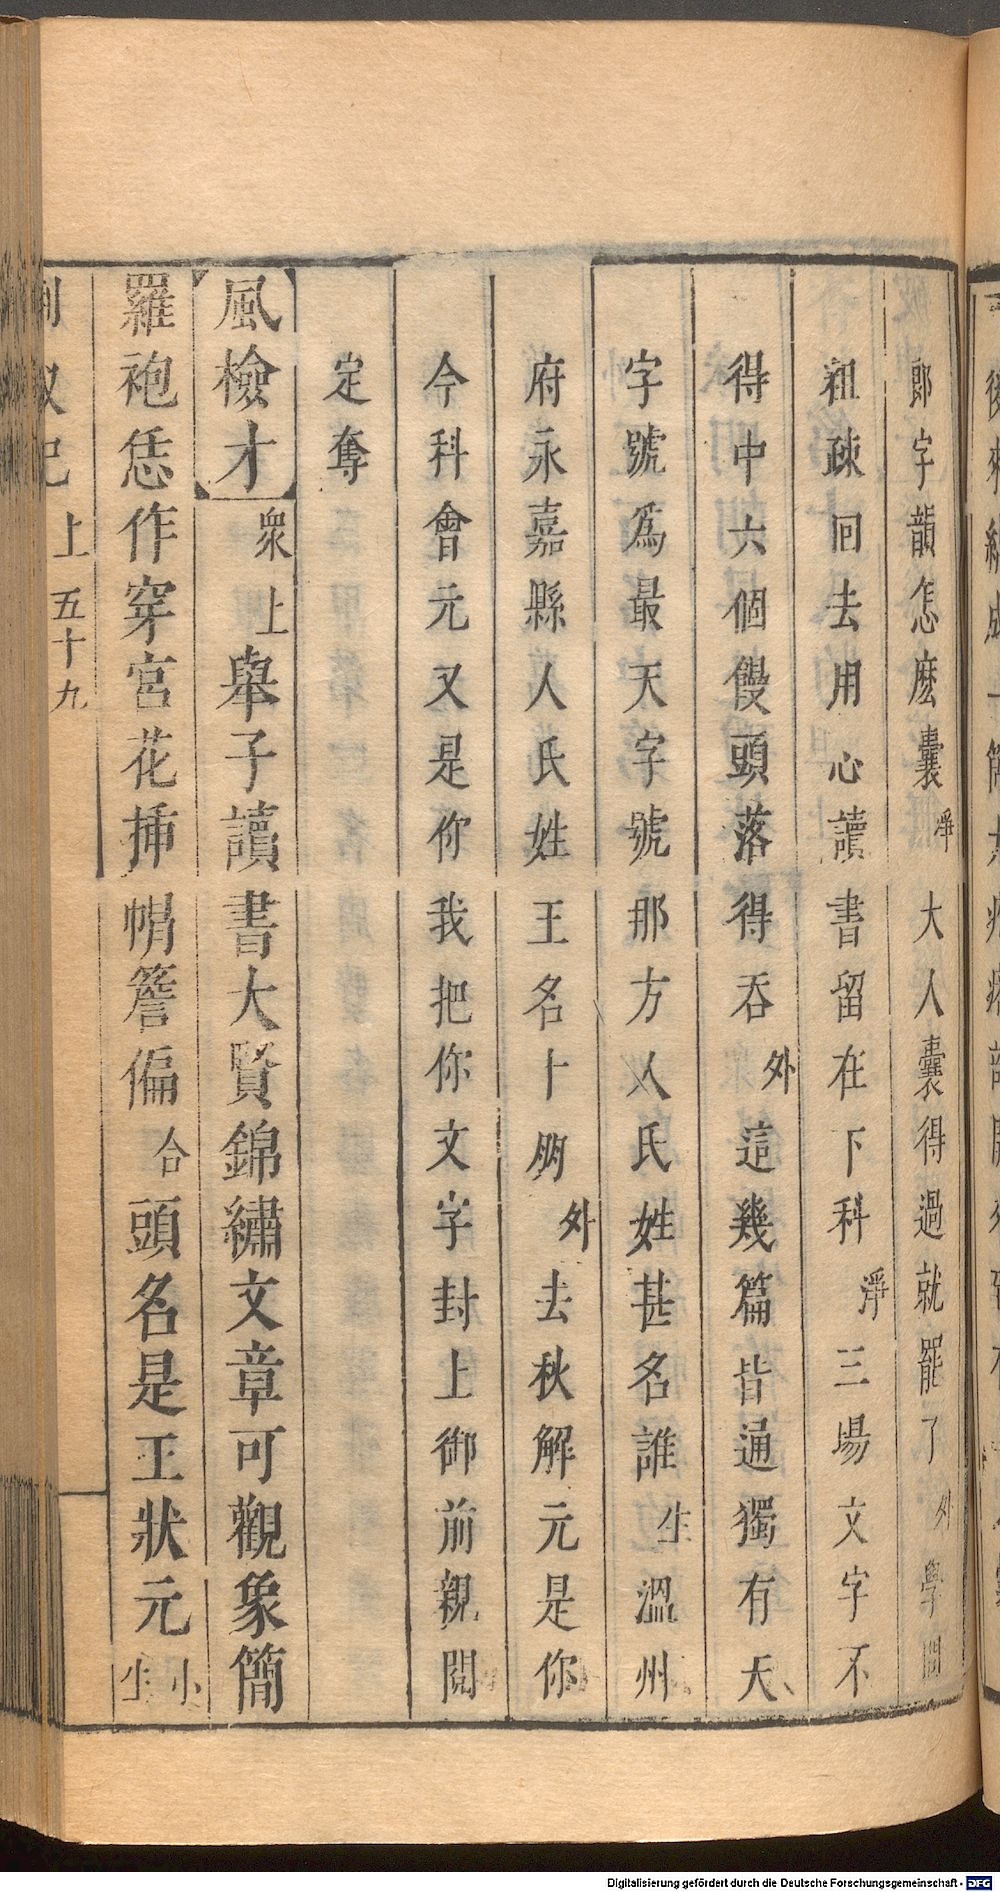 郎字韻怎麽囊淨大人囊得過就罷了外學問
祖疎回去用心讀書留在下科淨三場文字不
得中六個饅頭落得吞外這幾篇皆通獨有天
字號爲最天字號那方人氏姓甚名誰生溫州
府永嘉縣人氏姓王名十朋外去秋解元是你
今科會元又是你我把你文字封上御前親閱
定奪
風檢才衆上舉子讀書大賢錦繡文章可觀象簡
羅袍恁作穿宮花揷帽簷偏合頭名是王狀元小生
上 五十九
Digitalisierung gefördert durch die Deutsche Forschungsgemeinschaft - DFG